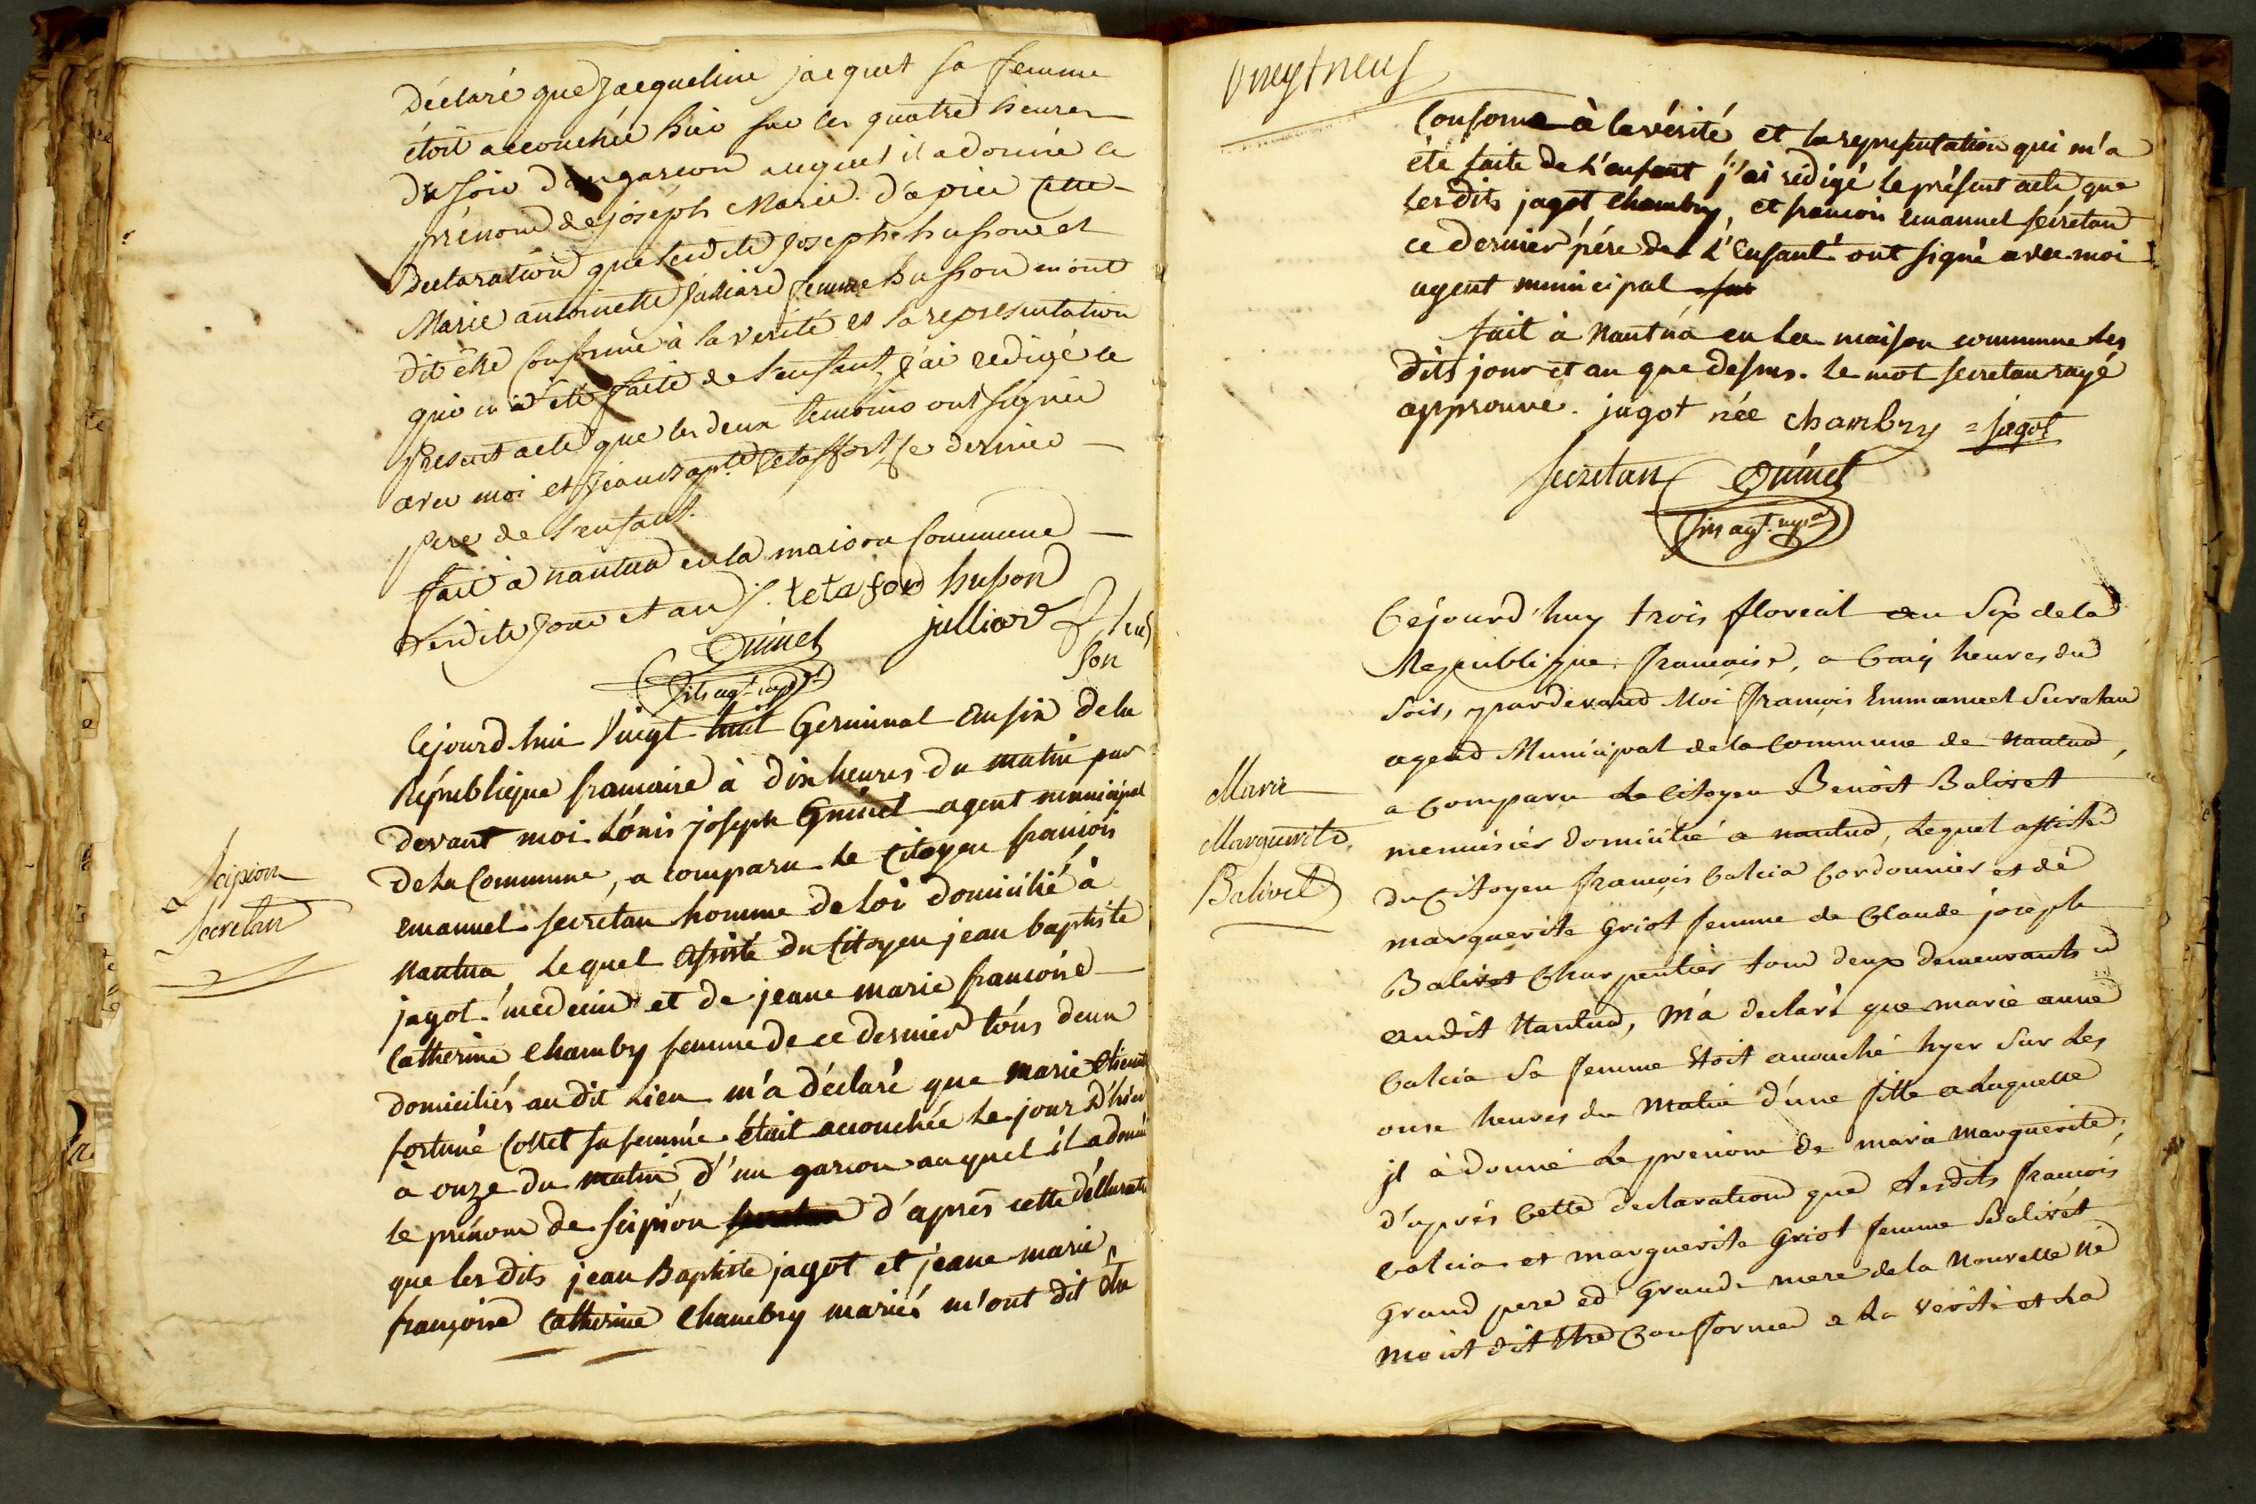 déclaré que Jacqueline jacquet sa femme
étoit accouchée hier sur les quatre heures
du soir d'un garcon auquel il a donné le
prénom de joséph Marie. d'aprèe cette
Declaration que lesdits Joseph husson et
Marie antoinette Julliard femme husson m'ont
dit être conforme à la vérité et la representation
qui m'a été faite de l'enfant, j'ai redigé le
present acte que les deux temoins ont signée
avec moi et Jean Bapte tetaffort ce dernier
pere de l'enfant.
fait à nantua en la maison Commune
lesdits Jour et an J. tetafor huson
julliard f. hus
son
Guinet
fils agt.
Scipion
Secretan
Cejourd'hui Vingt huit Germinal an six de la
République francaise à dix heures du matin par
devant moi Louis joseph Guinet agent municipal
de la Commune, a comparu le citoyen francois
emanuel secretan homme de loi domicilié à
Nantua lequel assisté du Citoyen jean baptiste
jagot médecin et de jeane marie francoise
Catherine Chambry femme de ce dernier tous deux
domiciliés au dit Lieu m'a déclaré que marie
fortuné Collet sa femme était accouchée le jour d'hier
à onze du matin d'un garcon auquel il a donné
le prénom de scipion secretan d'après cette déclarat
que les dits jean Baptiste jagot et jeane marie
françoise Catherine Chambry mariés m'ont dit être
Vneyt neuf
Conforme à la vérité et la representation qui m'a
été faite de L'enfant j'ai rédigé le présent acte que
les dits jagot Chambry, et francois emanuel secretan
ce dernier pére de L'enfant ont signé avec moi
agent municipal
fait à Nantua en la maison commune les
dits jour et an que dessus. le mot secretan rayé
approuvé. jagot née chambry = jagot
secretan Guinet
fils agt. mpal
Marie
Marguerite
Balivet
Cejourd'huy trois floreal an Six de la
Republique française, a Cinq heures du
soir, pardevand Moi François Emmanuel Secretan
agend Municipal de la Commune de Nantua,
a Comparu le Citoyen Benoit Balivet
menuisier domicilié a nantua, lequel assisté
du Citoyen françois Calcia Cordonnier et de
marguerite Griot femme de Claude joseph
Balivet Charpentier tous deux demeurants
audit Nantua, M'a declaré que marie anne
Calcia Sa femme Etoit acouché hyer Sur Les
onze heures du Matin d'une fille a laquelle
jl à donné le prenom de marie marguerite,
d'après Cette declaration que lesdits francois
Calcia et marguerite Griot femme Balivét
grand pere ed grande mere de la Nouvelle né
mont dit Etre Conforme a La verité et La